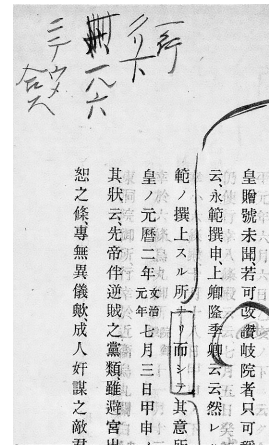 一行
ノリ下
一八六
ニテウメ
合ス
皇贈號未聞、若可改讃岐院者只可
云、永範撰申、上卿隆季卿云云然レ
範ノ撰上スル所ナリ而シテ其意所
皇ノ元曆二年文治元年七月三日甲申ノ
其狀云、先帝伴逆賊之黨類雖避宮出
恕之條、專無異儀歟、成人奸謀之敵君